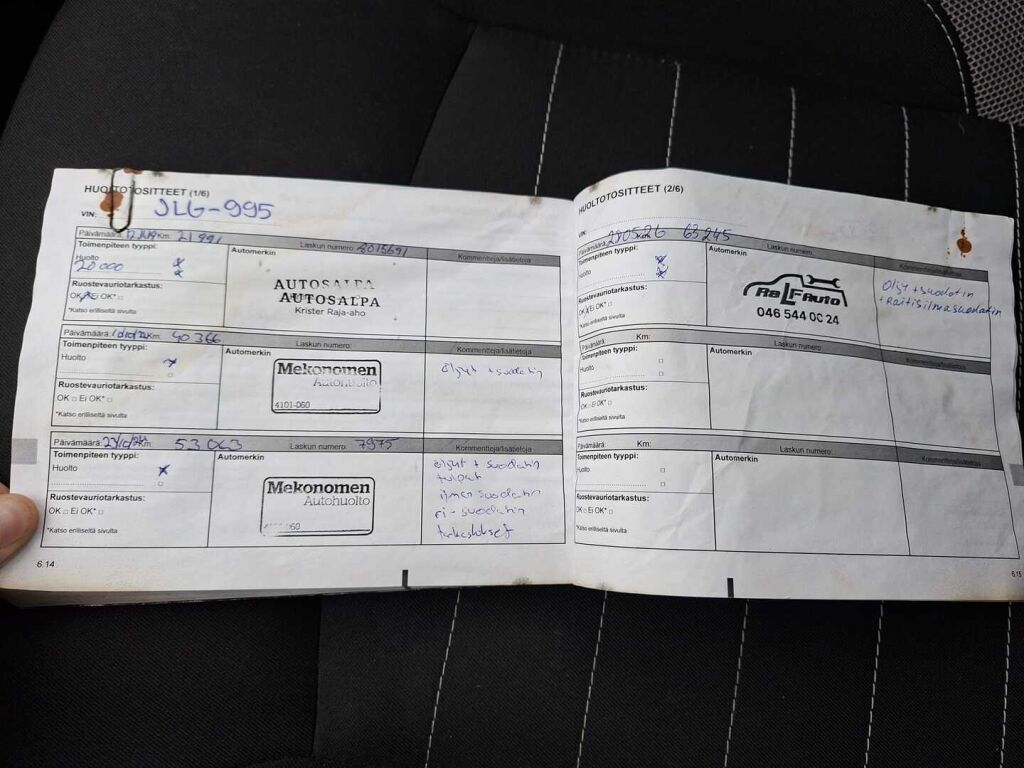 HUOLTOTOSITTEET (1/6)
VIN: JLG-995
Päivämäärä: Km: 21 991 Laskun numero: 8015691 Kommentteja/lisätietoja
Toimenpiteen tyyppi: Automerkin
Huolto
20 000
Ruostevauriotarkastus:
OK Ei OK* □
*Katso erilliseltä sivulta
AUTOSALPA
AUTOSALPA
Krister Raja-aho
Päivämäärä: Km: 40 366 Laskun numero: Kommentteja/lisätietoja
Toimenpiteen tyyppi: Automerkin
Huolto
Ruostevauriotarkastus:
OK □ Ei OK* □
*Katso erilliseltä sivulta
Mekonomen
Autohuolto
4101-060
öljyt + suodatin
Päivämäärä: Km: 53 063 Laskun numero: 7975 Kommentteja/lisätietoja
Toimenpiteen tyyppi: Automerkin
Huolto
Ruostevauriotarkastus:
OK □ Ei OK* □
*Katso erilliseltä sivulta
Mekonomen
Autohuolto
öljyt + suodatin
tulpat
ilman suodatin
ri-suodatin
tarkastukset
6.14
HUOLTOTOSITTEET (2/6)
VIN:
Päivämäärä: 280526 Km: 63245 Laskun numero: Kommentteja/lisätietoja
Toimenpiteen tyyppi: Automerkin
Huolto
Ruostevauriotarkastus:
OK Ei OK* □
*Katso erilliseltä sivulta
RaLF Auto
046 544 00 24
Öljyt + suodatin
+ Raitisilmasuodatin
Päivämäärä: Km: Laskun numero: Kommentteja/lisätietoja
Toimenpiteen tyyppi: Automerkin
Huolto
Ruostevauriotarkastus:
OK □ Ei OK* □
*Katso erilliseltä sivulta
Päivämäärä: Km: Laskun numero: Kommentteja/lisätietoja
Toimenpiteen tyyppi: Automerkin
Huolto
Ruostevauriotarkastus:
OK □ Ei OK* □
*Katso erilliseltä sivulta
6.15